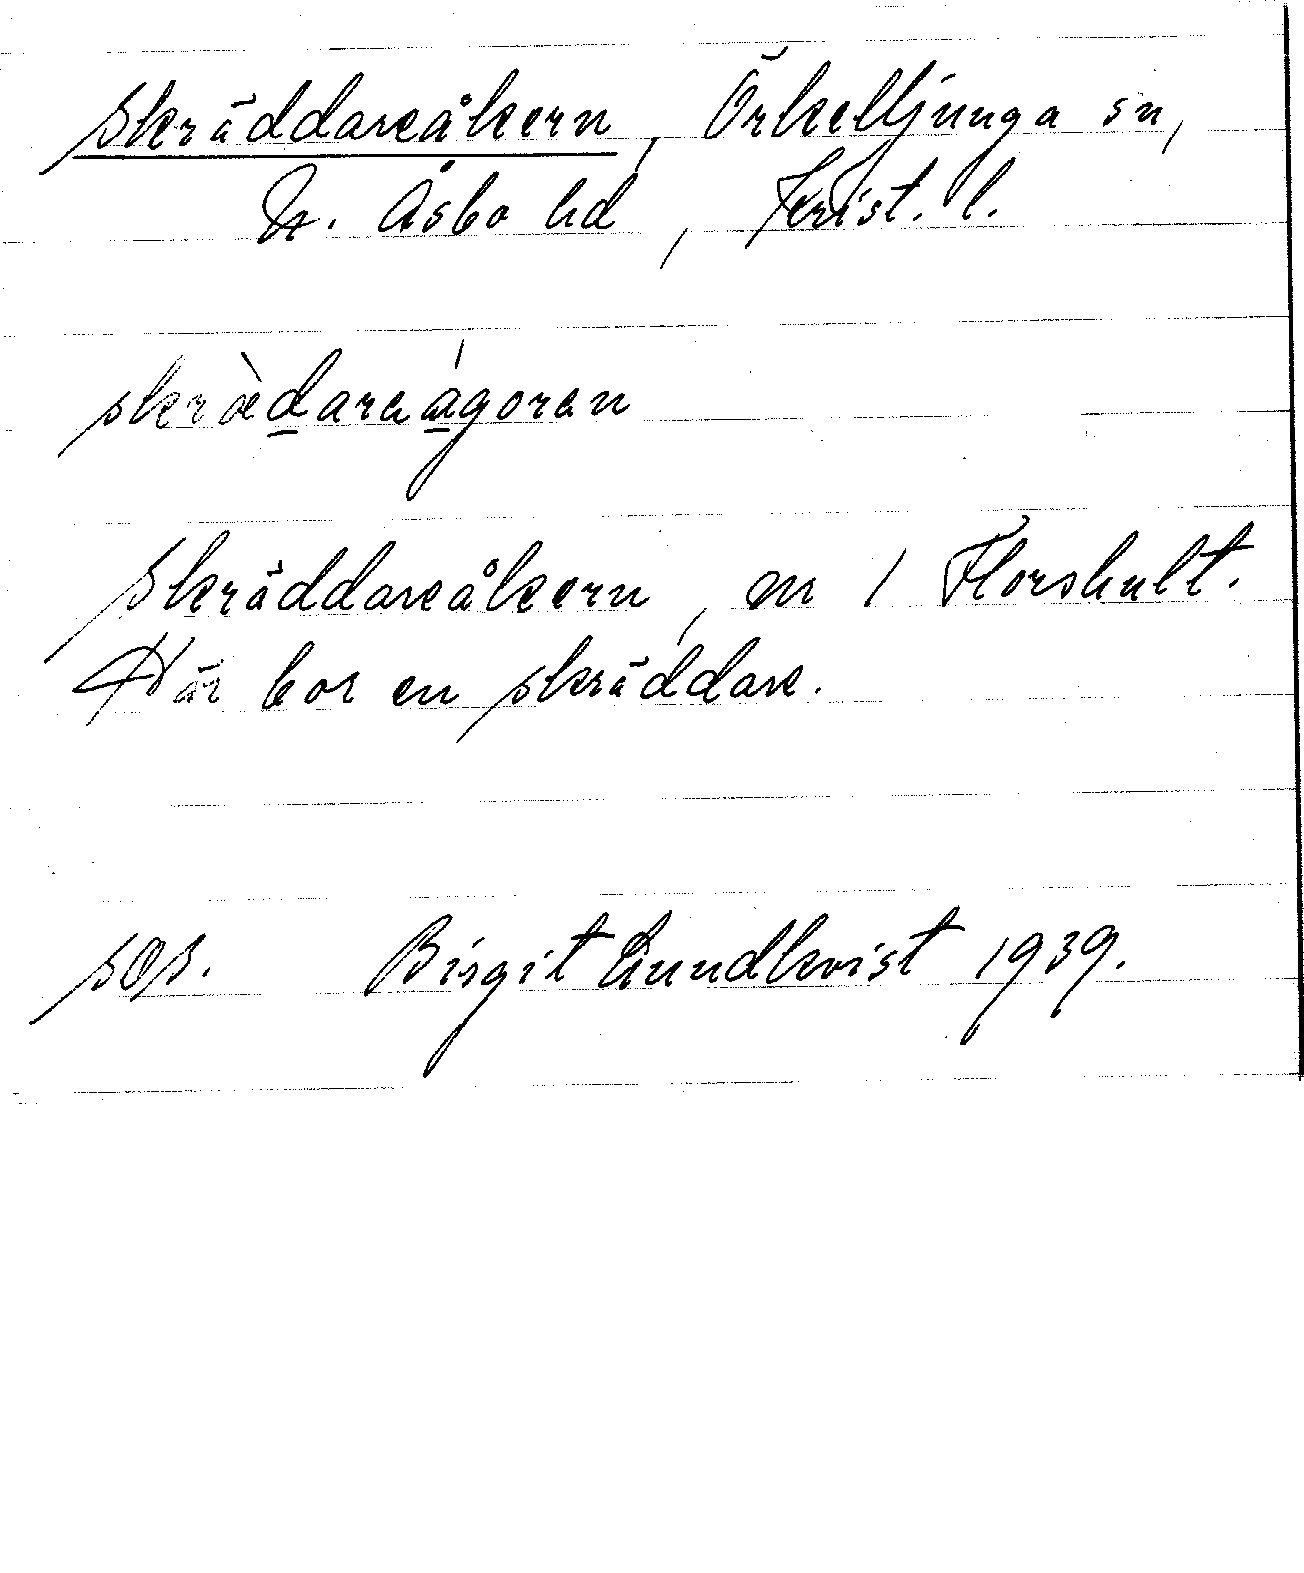 Skräddareåkern, Örkelljunga sn,
N. Åsbo hd, Krist. l.
skræ̀daraágoran
Skräddareåkern, en / Florshult.
Här bor en skräddare.
sös. Birgit Lundkvist 1939.